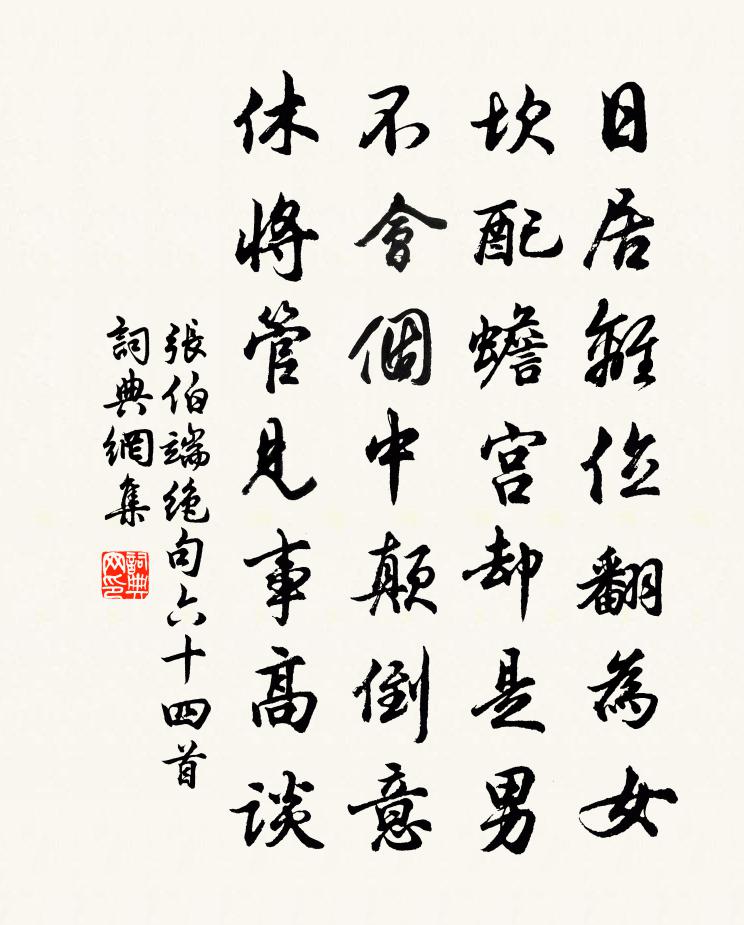 日居離位翻為女
坎配蟾宮却是男
不會個中顛倒意
休將管見事高談
張伯端絶句六十四首
詞典網集
詞典
网印